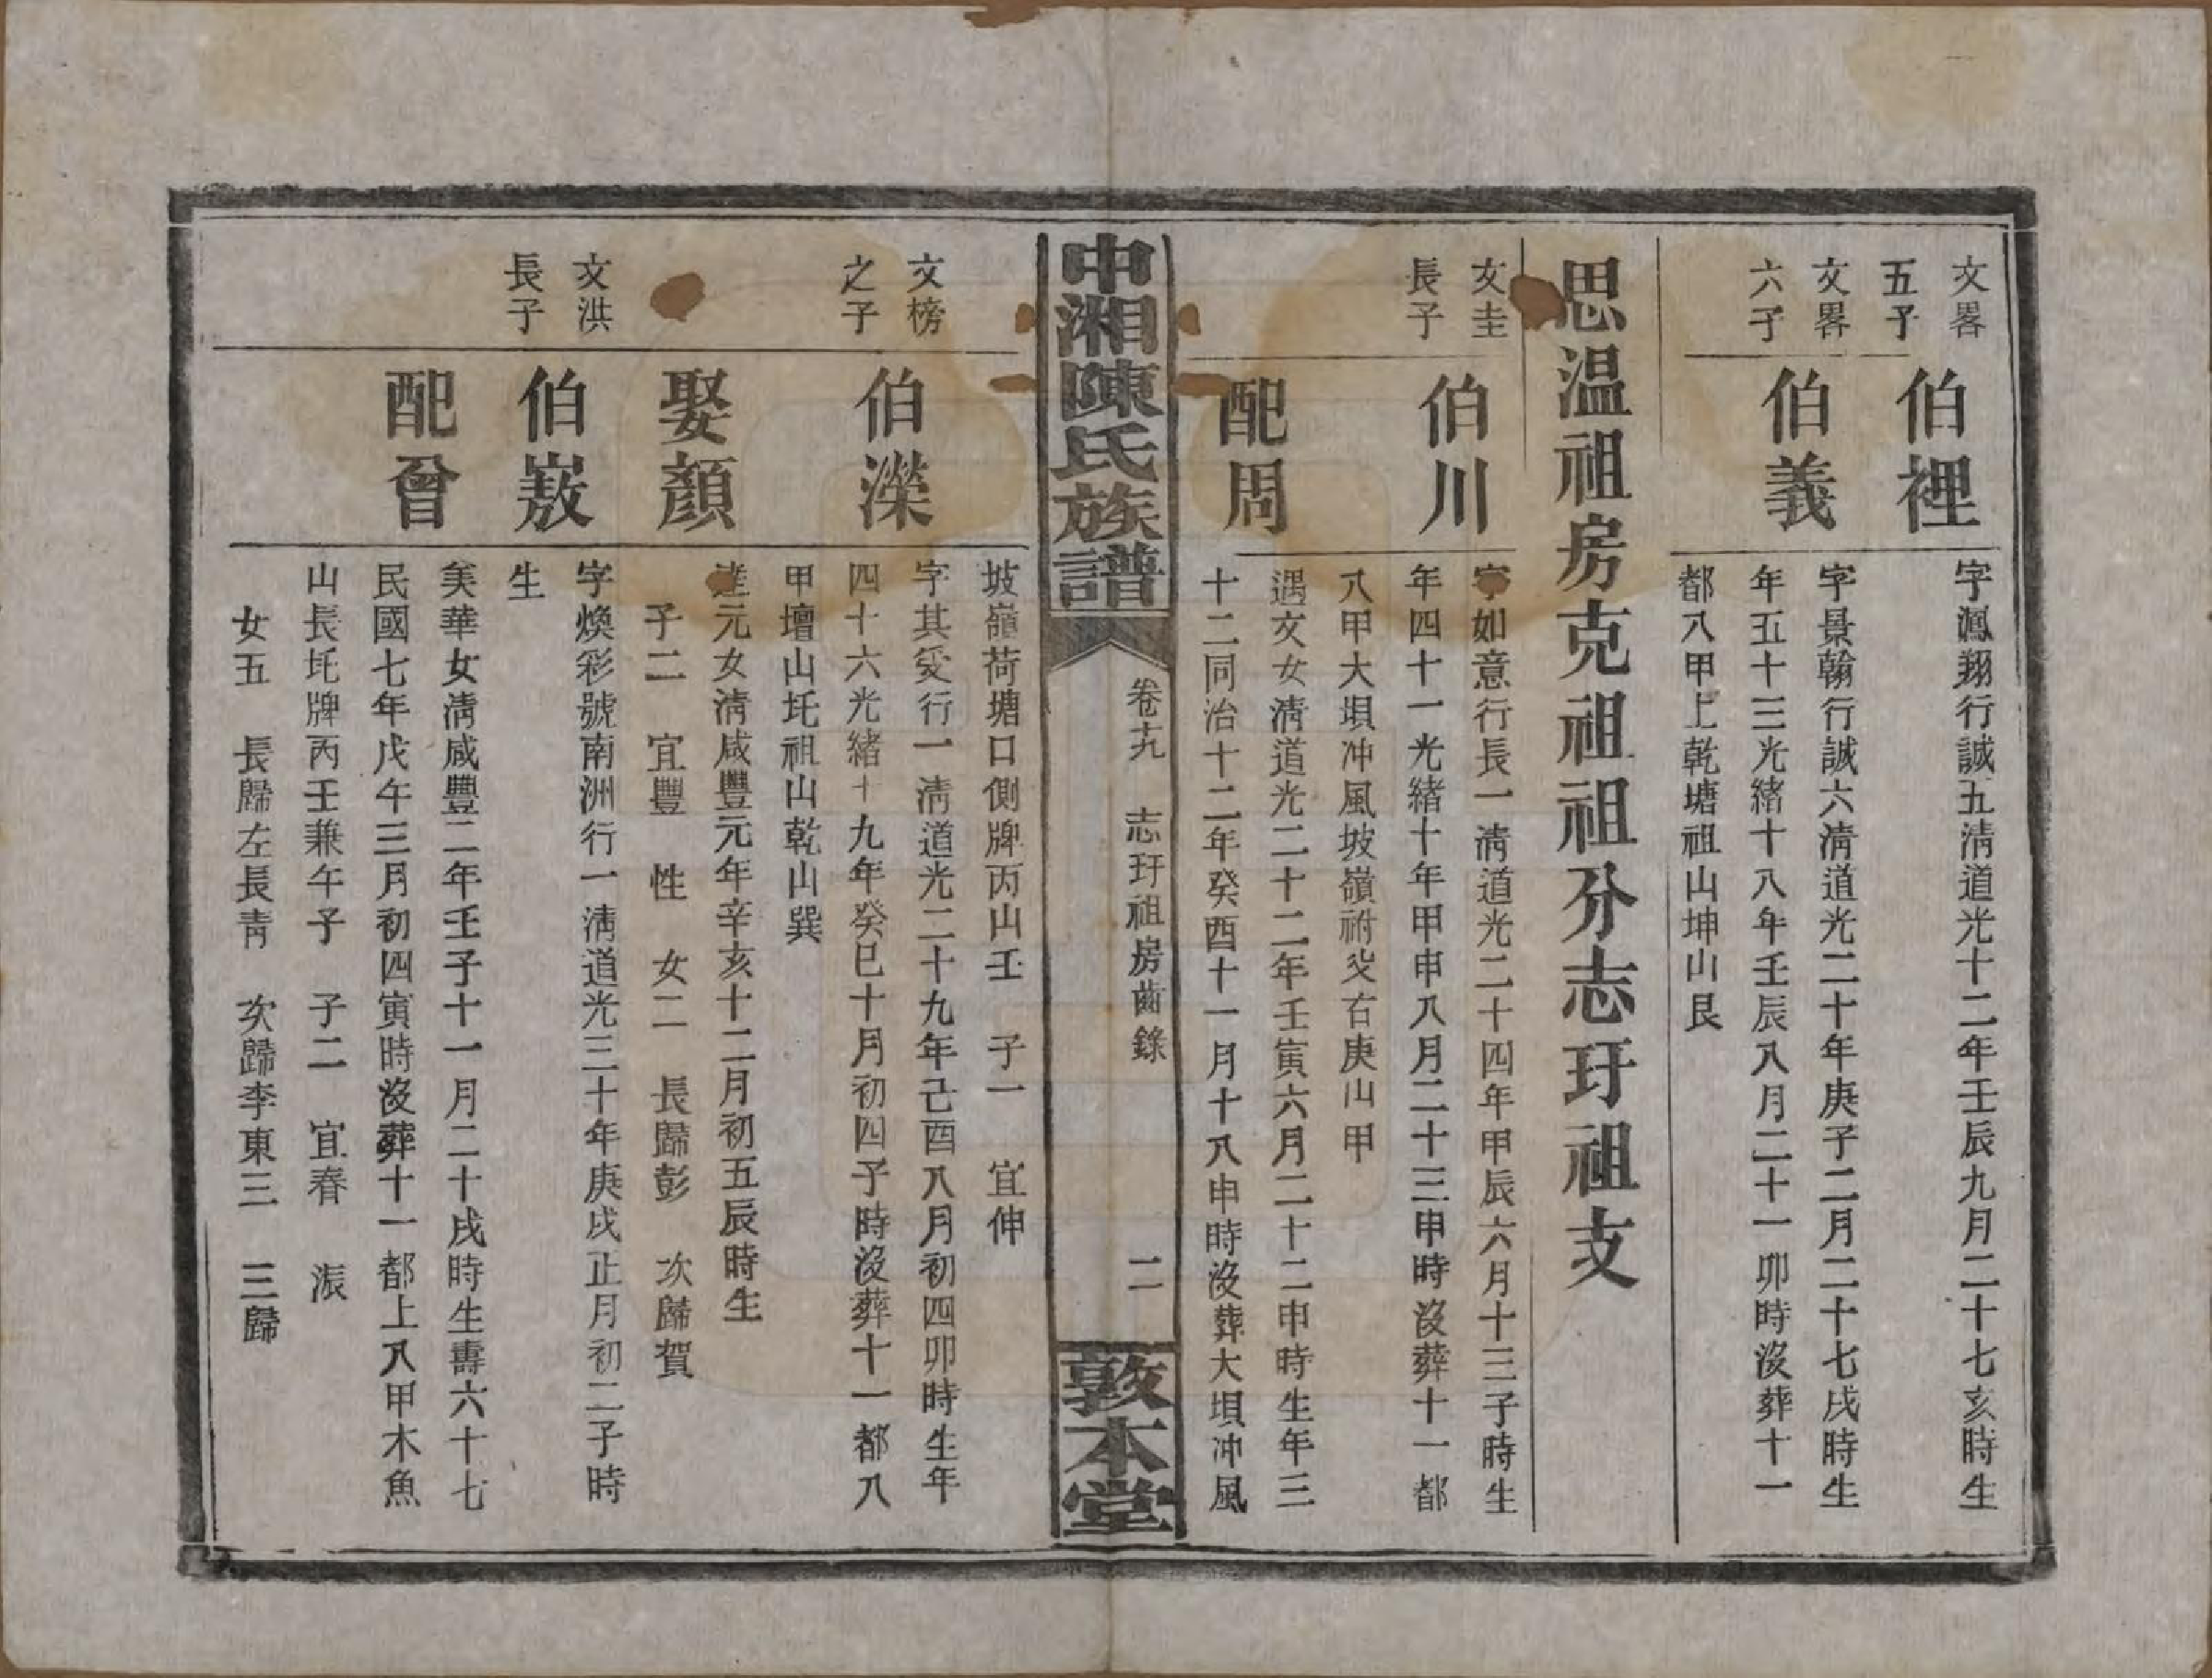 文畧
五子
伯裡
字鳳翔行誠五清道光十二年壬辰九月二十七亥時生
文畧
六子
伯義
字景翰行誠六清道光二十年庚子二月二十七戌時生
年五十三光緒十八年壬辰八月二十一卯時沒葬十一
都八甲上乾塘祖山坤山艮
思温祖房克祖祖分志玗祖支
文圭
長子
伯川
字如意行長一清道光二十四年甲辰六月十三子時生
年四十一光緒十年甲申八月二十三申時沒葬十一都
八甲大垻冲風坡嶺祔父右庚山甲
配周
遇文女清道光二十二年壬寅六月二十二申時生年三
十二同治十二年癸酉十一月十八申時沒葬大垻冲風
中湘陳氏族譜
卷十九 志玗祖房齒錄
二
敦本堂
坡嶺荷塘口側牌丙山壬 子一 宜伸
文榜
之子
伯濼
字其燮行一清道光二十九年己酉八月初四卯時生年
四十六光緒十九年癸巳十月初四子時沒葬十一都八
甲壇山圫祖山乾山巽
娶顏
逹元女清咸豐元年辛亥十二月初五辰時生
子二 宜豐 性 女二 長歸彭 次歸賀
文洪
長子
伯嶅
字煥彩號南洲行一清道光三十年庚戌正月初二子時
生
配曾
美華女清咸豐二年壬子十一月二十戌時生壽六十七
民國七年戊午三月初四寅時沒葬十一都上八甲木魚
山長圫牌丙壬兼午子 子二 宜春 漲
女五 長歸左長青 次歸李東三 三歸